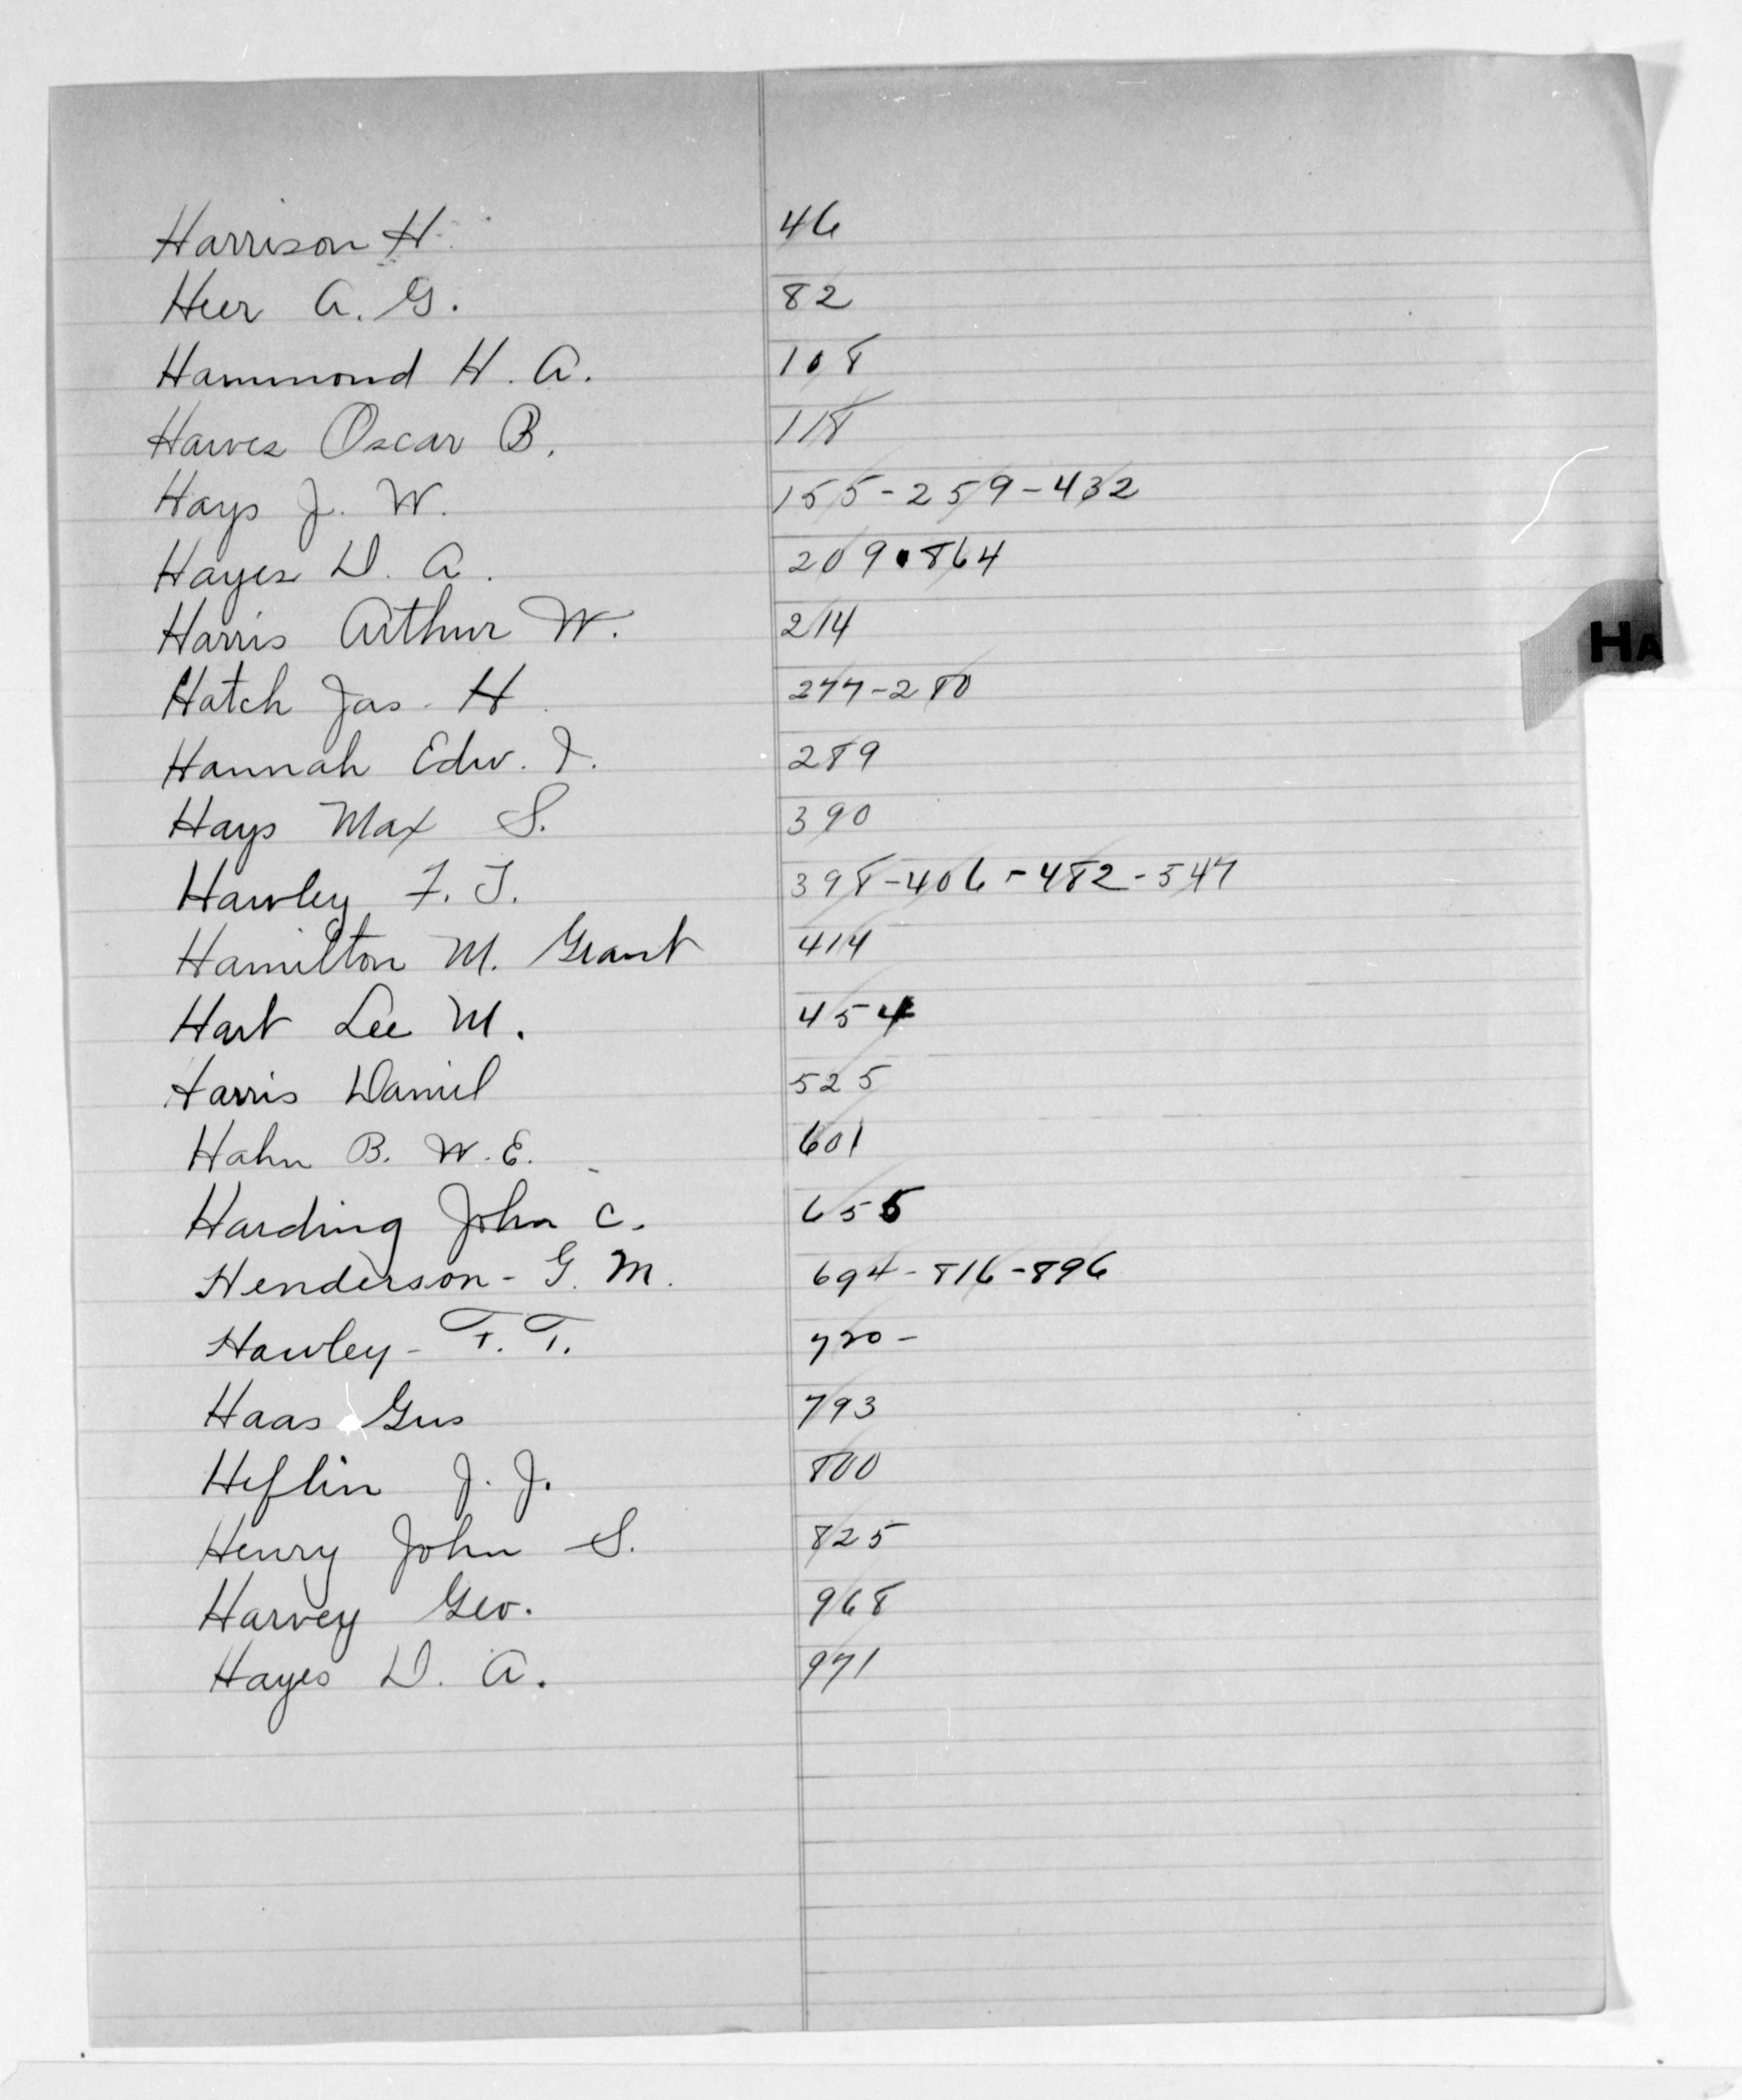 Harrison H. 46
Heer A. G. 82
Hammond H. A. 108
Hawes Oscar B. 118
Hays J. W. 155-259-432
Hayes D. A. 209.864
Harris Arthur W. 214
HA
Hatch Jas. H 277-280
Hannah Edw. I. 289
Hays Max S. 390
Hawley F. T. 398-406-482-547
Hamilton M. Grant 414
Hart Lee M. 454
Harris Daniel 525
Hahn B. W. E. 601
Harding John C. 655
Henderson - G. M. 694-816-896
Hawley - F. T. 720-
Haas Gus 793
Heflin J. J. 800
Henry John S. 825
Harvey Geo. 968
Hayes D. A. 971